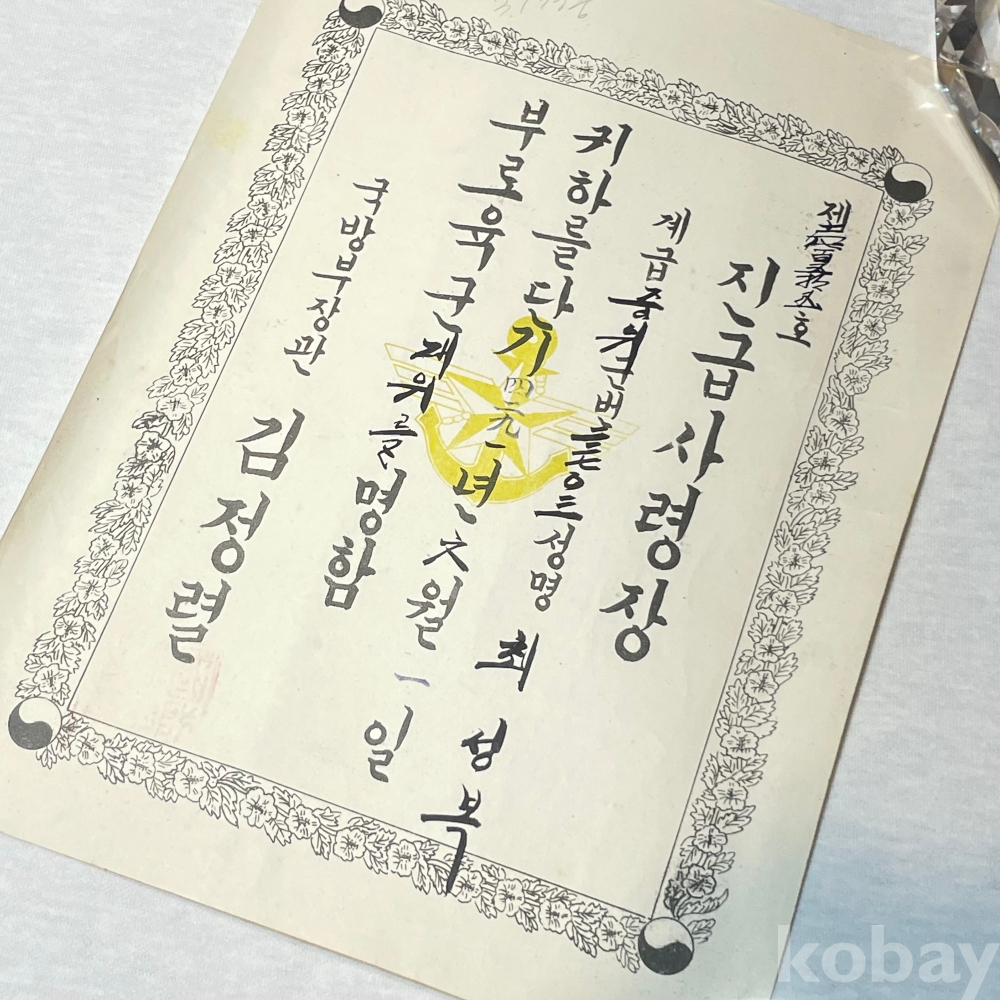 제 호
진급사령장
계급 중위 군번 성명 최성복
귀하를단기四二九一년六월一일
부로육군대위를명함
국방부장관 김정렬
kobay